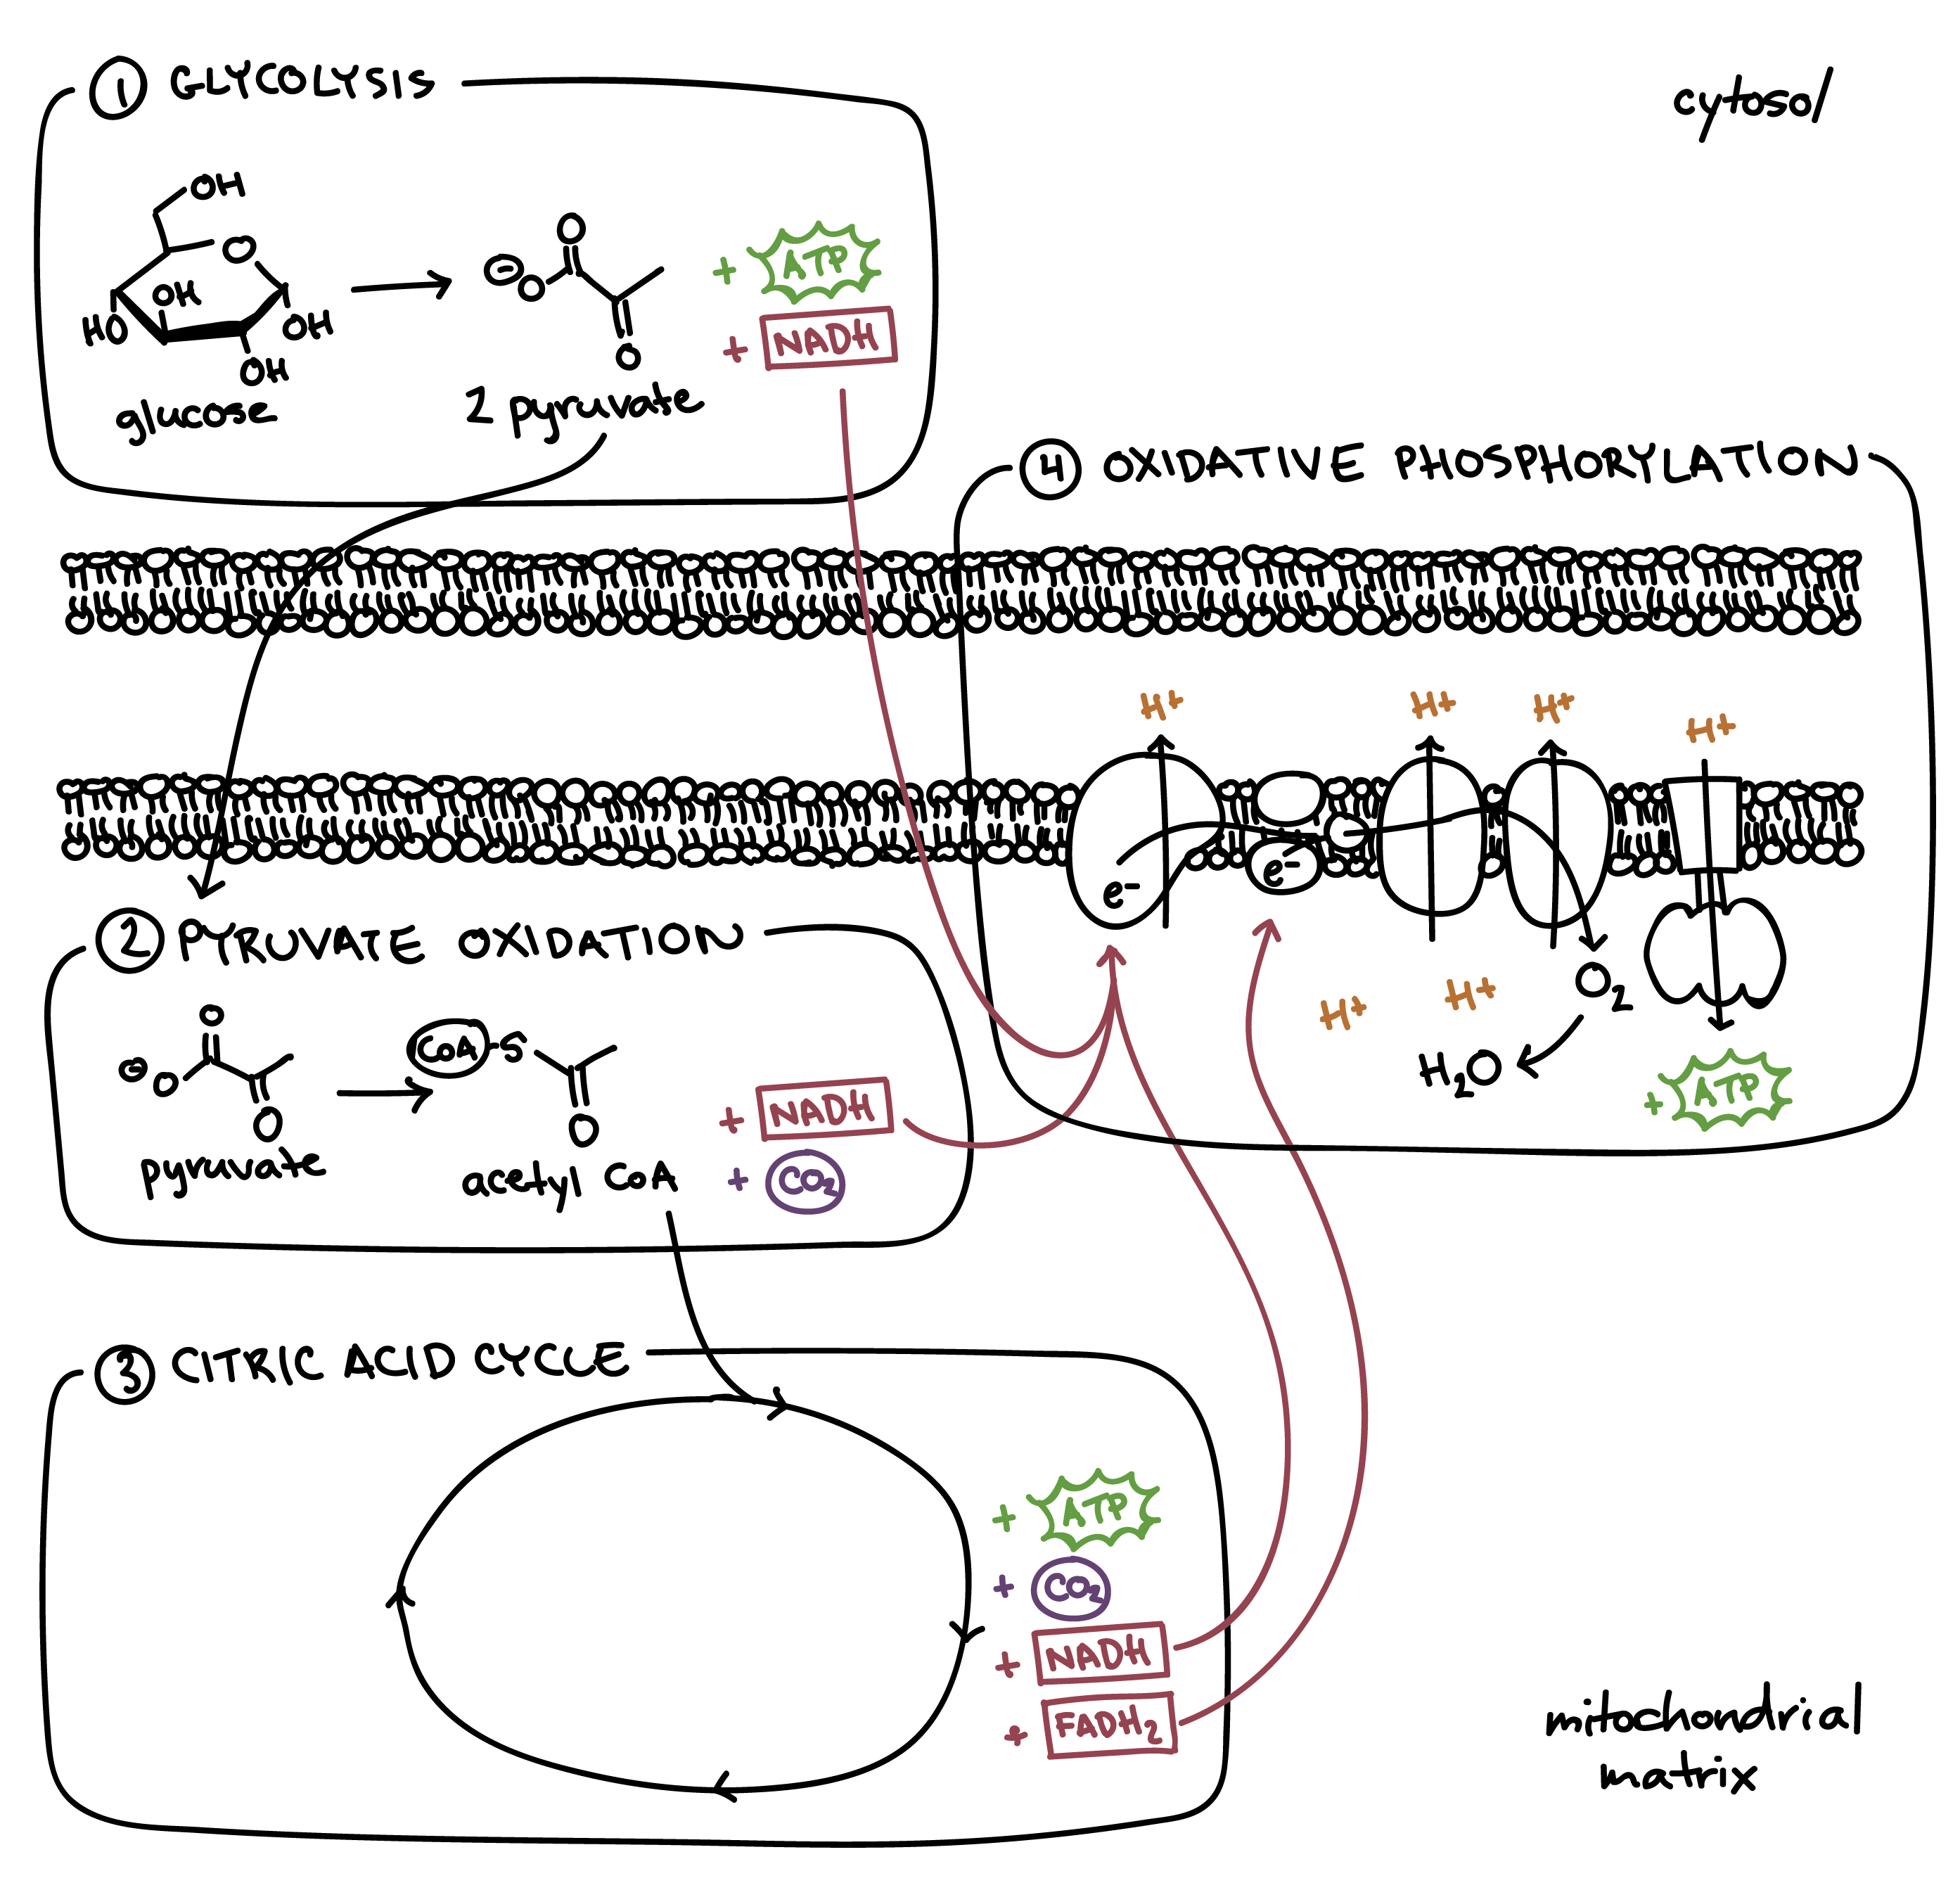 1 GLYCOLYSIS
cytosol
OH
O
OH
HO
OH
OH
glucose
O
⊖
O
O
2 pyruvate
+ ATP
+ NADH
4 OXIDATIVE PHOSPHORYLATION
H+ H+ H+ H+
e- e-
H+ H+
O2
H2O
+ ATP
2 PYRUVATE OXIDATION
O
⊖ O
O
pyruvate
CoA-S
O
acetyl CoA
+ NADH
+ CO2
3 CITRIC ACID CYCLE
+ ATP
+ CO2
+ NADH
+ FADH2
mitochondrial
matrix